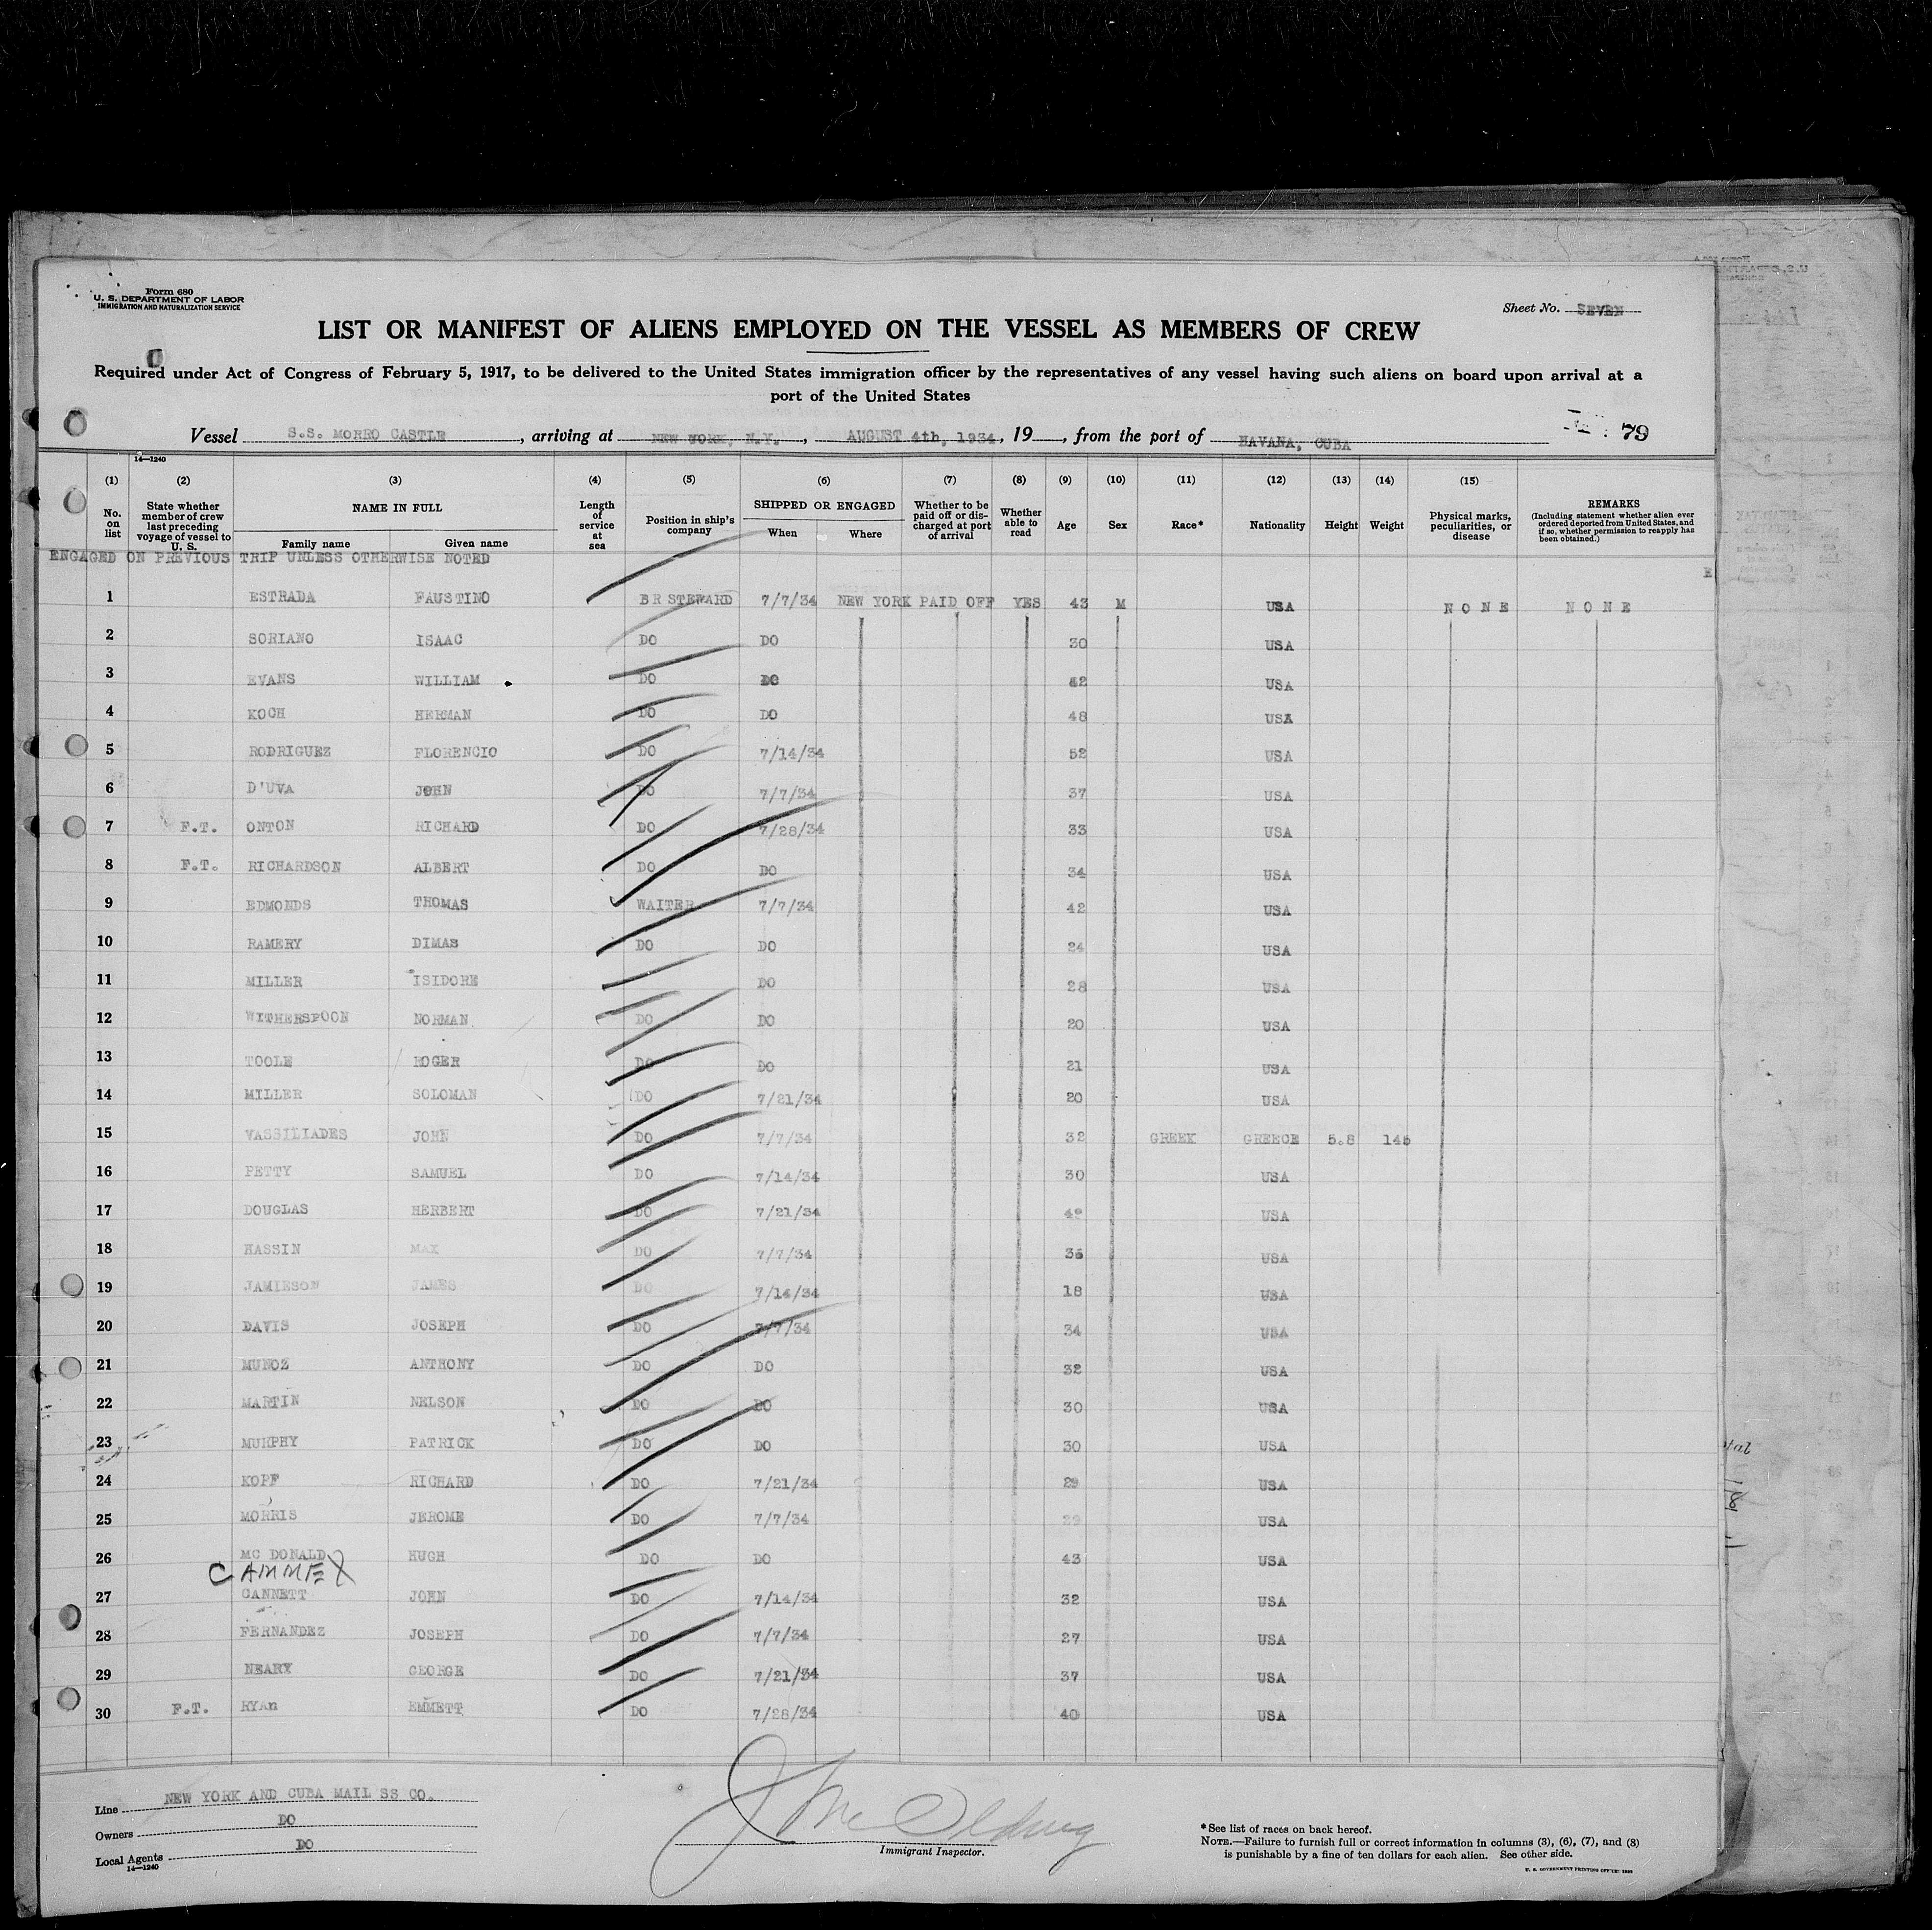 Form 680
U. S. DEPARTMENT OF LABOR
IMMIGRATION AND NATURALIZATION SERVICE
Sheet No. SEVEN
LIST OR MANIFEST OF ALIENS EMPLOYED ON THE VESSEL AS MEMBERS OF CREW
Required under Act of Congress of February 5, 1917, to be delivered to the United States immigration officer by the representatives of any vessel having such aliens on board upon arrival at a
port of the United States
Vessel S.S. MORRO CASTLE, arriving at NEW YORK, N.Y., AUGUST 4th, 1934, 19, from the port of HAVANA, CUBA
79
14—1240
(1) (2) (3) (4) (5) (6) (7) (8) (9) (10) (11) (12) (13) (14) (15)
No. on list
State whether member of crew last preceding voyage of vessel to U. S.
NAME IN FULL
Family name Given name
Length of service at sea
Position in ship's company
SHIPPED OR ENGAGED
When Where
Whether to be paid off or discharged at port of arrival
Whether able to read
Age
Sex
Race*
Nationality
Height
Weight
Physical marks, peculiarities, or disease
REMARKS
(Including statement whether alien ever ordered deported from United States, and if so, whether permission to reapply has been obtained.)
ENGAGED ON PREVIOUS TRIP UNLESS OTHERWISE NOTED
1 ESTRADA FAUSTINO BR STEWARD 7/7/34 NEW YORK PAID OFF YES 43 M USA NONE NONE
2 SORIANO ISAAC DO DO 30 USA
3 EVANS WILLIAM DO DO 42 USA
4 KOCH HERMAN DO DO 48 USA
5 RODRIGUEZ FLORENCIO DO 7/14/34 52 USA
6 D'UVA JOHN DO 7/7/34 37 USA
7 F.T. ONTON RICHARD DO 7/28/34 33 USA
8 F.T. RICHARDSON ALBERT DO DO 34 USA
9 EDMONDS THOMAS WAITER 7/7/34 42 USA
10 RAMERY DIMAS DO DO 24 USA
11 MILLER ISIDORE DO 28 USA
12 WITHERSPOON NORMAN DO DO 20 USA
13 TOOLE ROGER DO DO 21 USA
14 MILLER SOLOMAN DO 7/21/34 20 USA
15 VASSILIADES JOHN DO 7/7/34 32 GREEK GREECE 5.8 145
16 PETTY SAMUEL DO 7/14/34 30 USA
17 DOUGLAS HERBERT DO 7/21/34 USA
18 HASSIN MAX DO 7/7/34 USA
19 JAMIESON JAMES DO 7/14/34 18 USA
20 DAVIS JOSEPH DO 7/7/34 34 USA
21 MUNOZ ANTHONY DO DO 32 USA
22 MARTIN NELSON DO DO 30 USA
23 MURPHY PATRICK DO DO 30 USA
24 KOPF RICHARD DO 7/21/34 USA
25 MORRIS JEROME DO 7/7/34 29 USA
26 MC DONALD HUGH DO DO 43 USA
27 CANNETT JOHN DO 7/14/34 32 USA
28 FERNANDEZ JOSEPH DO 7/7/34 27 USA
29 NEARY GEORGE DO 7/21/34 37 USA
30 F.T. RYAn EMMETT DO 7/28/34 40 USA
Line NEW YORK AND CUBA MAIL SS CO.
Owners DO
Local Agents DO
14—1240
Immigrant Inspector.
*See list of races on back hereof.
NOTE.—Failure to furnish full or correct information in columns (3), (6), (7), and (8)
is punishable by a fine of ten dollars for each alien. See other side.